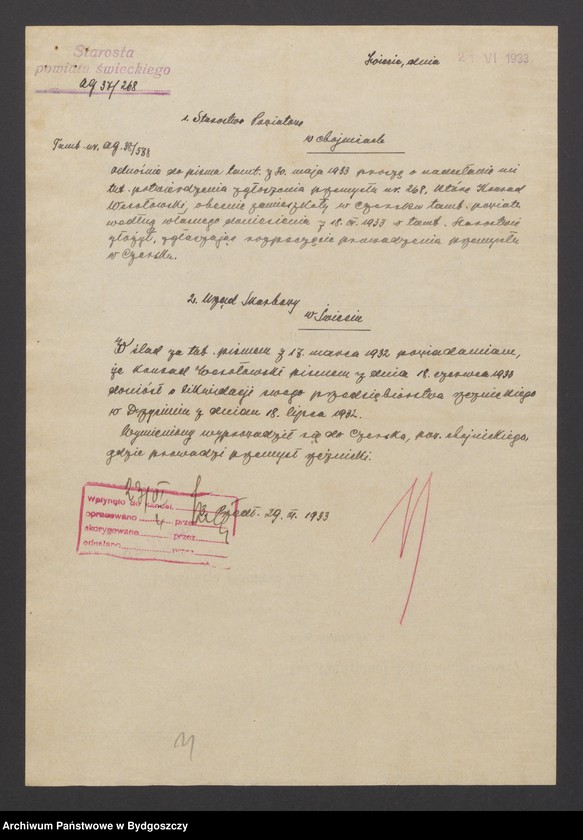 Starosta
powiatu świeckiego
AG 37/268
Świecie, dnia 2 VI 1933
1. Starostwo Powiatowe
w Chojnicach
Tamb. nr. AG. 38/588
Odnośnie do pisma tamt. z 30. maja 1933 proszę o nadesłanie mi
tut. potwierdzenia zgłoszenia przemysłu nr. 268, które Konrad
Wesołowski, obecnie zamieszkały w Czersku tamb. powiatu
według własnego doniesienia z 18. VI. 1933 w tamb. Starostwie
złożył, zgłaszając rozpoczęcie prowadzenia przemysłu
w Czersku.
2. Urząd Skarbowy
w Świeciu
W ślad za tut. pismem z 17. marca 1932 powiadamiam,
że Konrad Wesołowski pismem z dnia 18. czerwca 1933
doniósł o likwidacji swego przedsiębiorstwa rzeźnickiego
w Drzycimiu z dniem 18. lipca 1932.
Wymieniony wyprowadził się do Czerska, pow. chojnickiego,
gdzie prowadzi przemysł rzeźnicki.
27/VI
Wpłynęło do kancel.
opracowano 4 przez
skorygowano przez
odesłano przez
29. VI. 1933
Archiwum Państwowe w Bydgoszczy